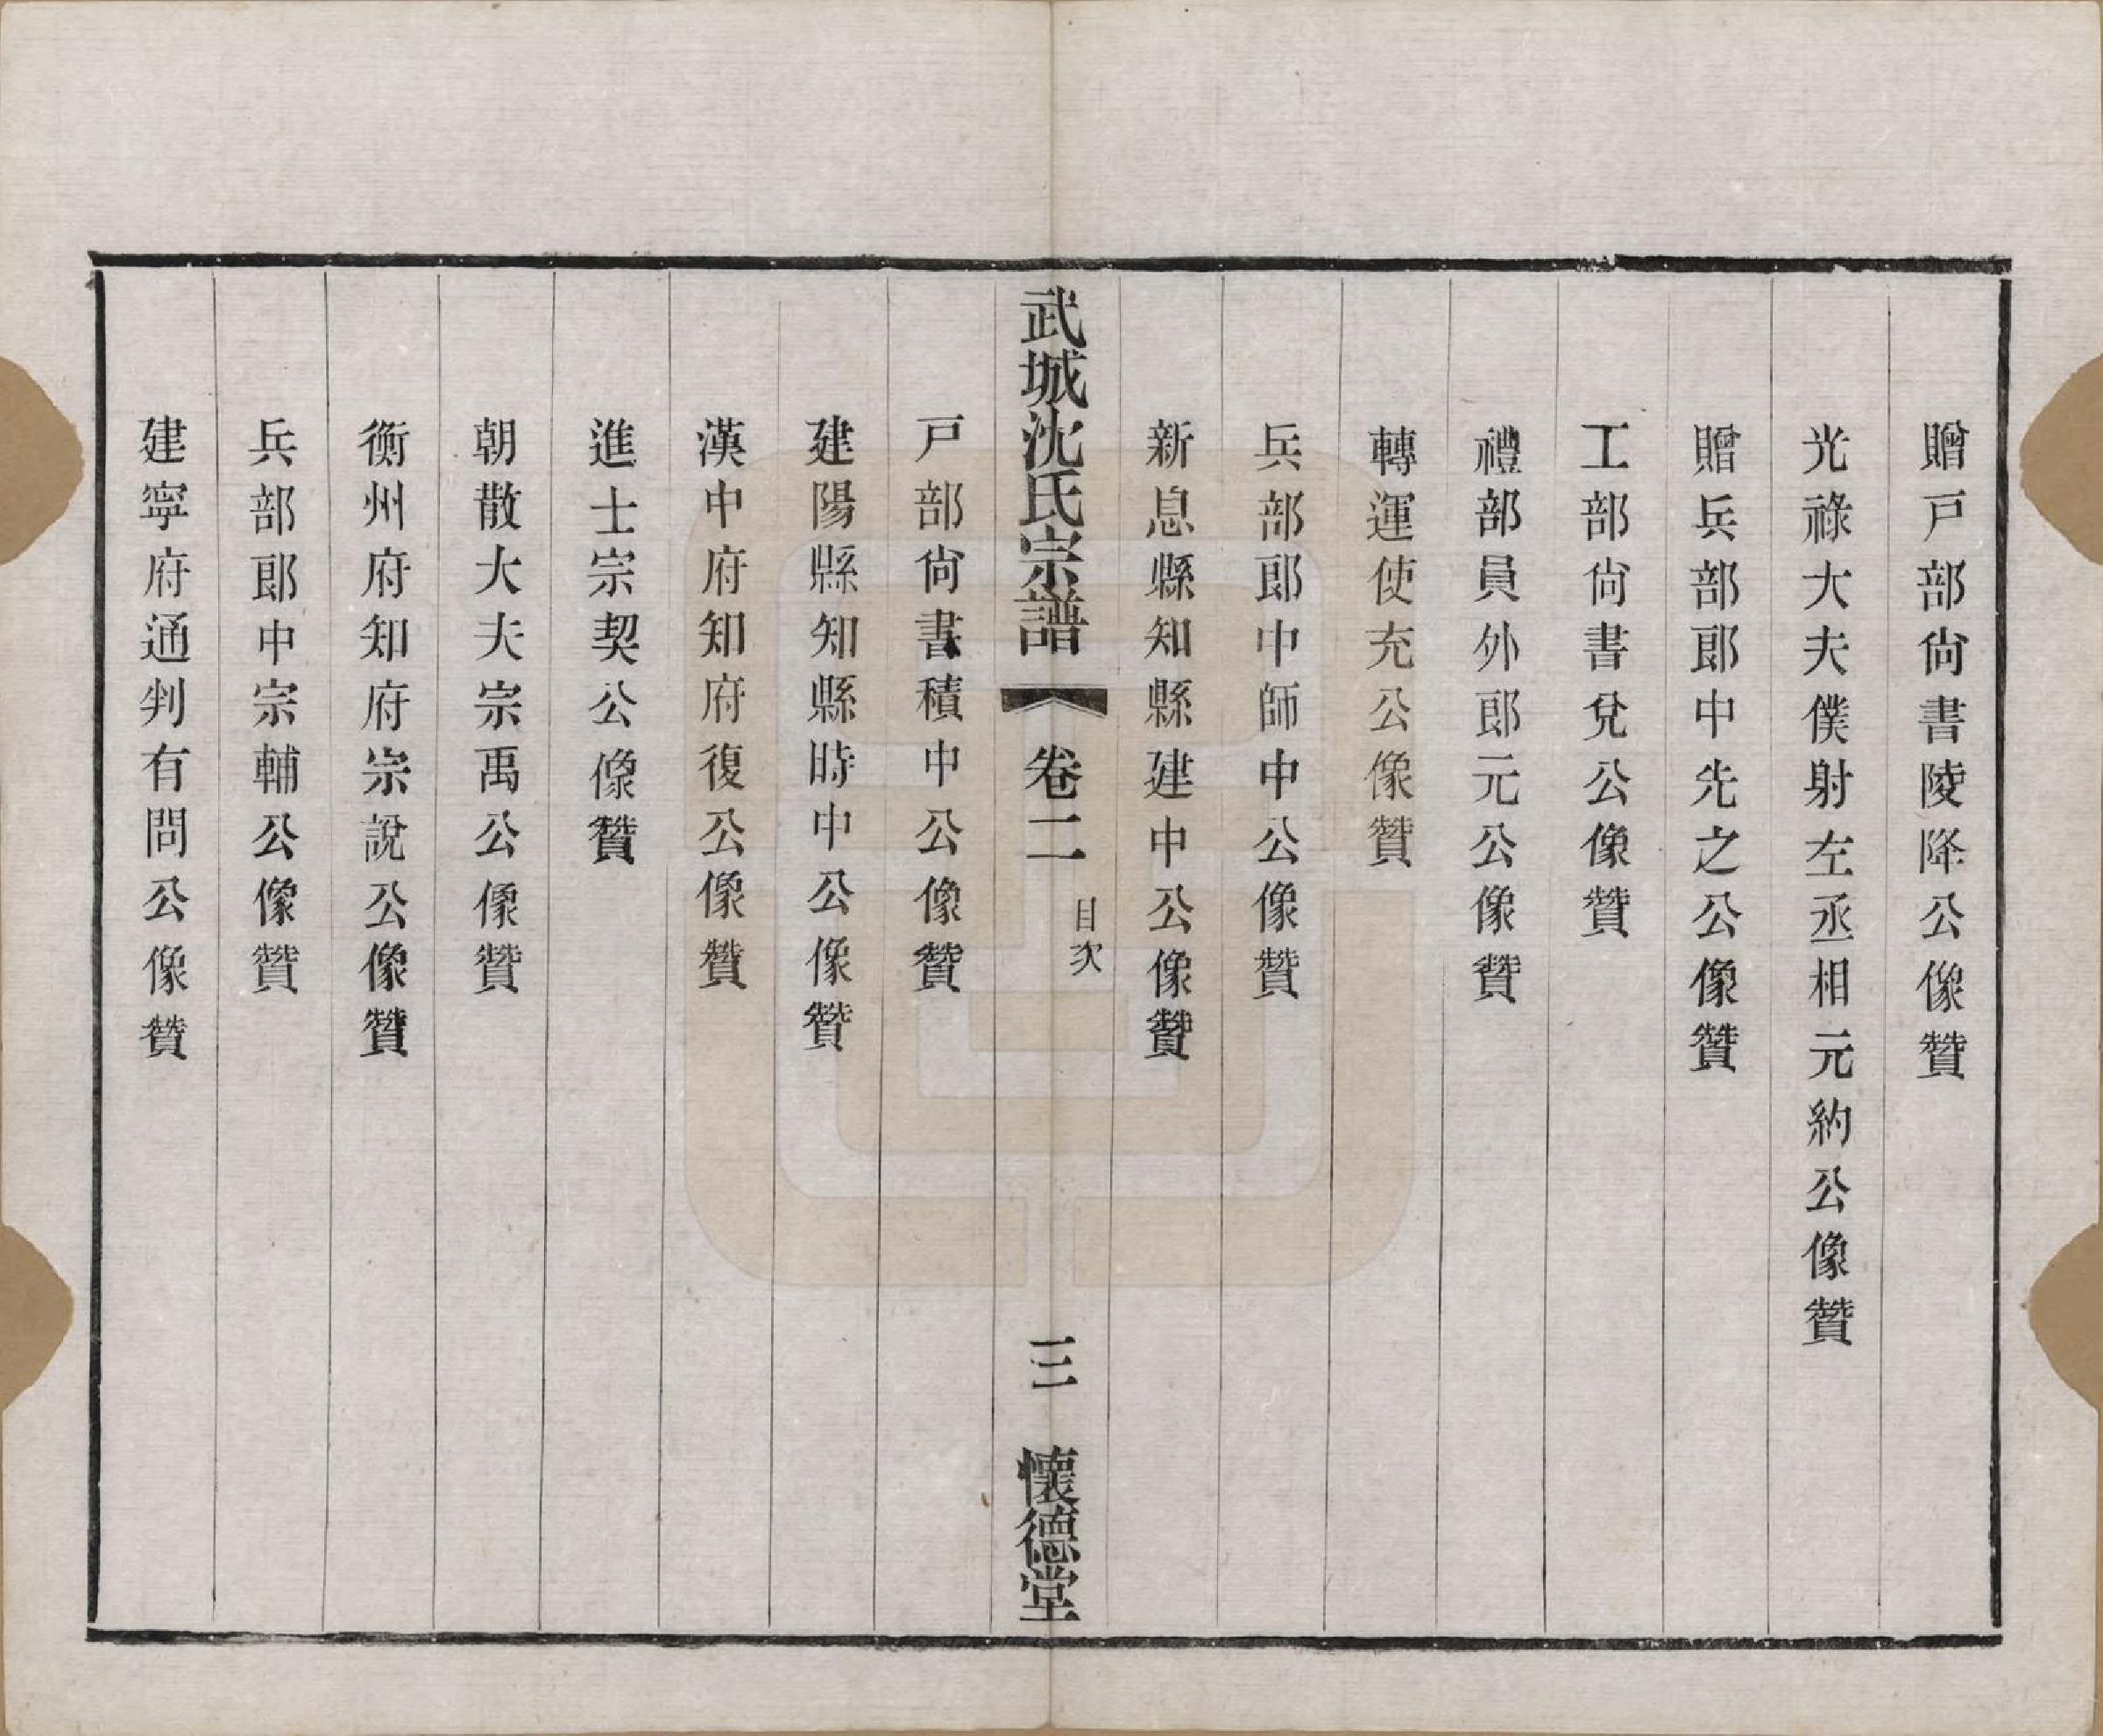 贈戸部尙書陵降公像贊
光祿大夫僕射左丞相元約公像贊
贈兵部郎中先之公像贊
工部尙書兌公像贊
禮部員外郎元公像贊
轉運使充公像贊
兵部郎中師中公像贊
新息縣知縣建中公像贊
武城沈氏宗譜 卷二 目次 三 懷德堂
戸部尙書積中公像贊
建陽縣知縣時中公像贊
漢中府知府復公像贊
進士宗契公像贊
朝散大夫宗禹公像贊
衡州府知府宗說公像贊
兵部郎中宗輔公像贊
建寧府通判有問公像贊